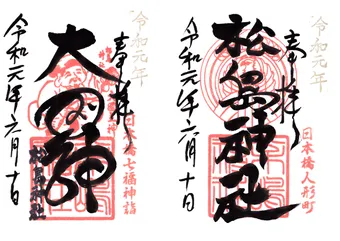 令和元年
奉拝
大国神
日本橋七福神詣
松島神社
令和元年六月十日
令和元年
奉拝
松島神社
日本橋人形町
令和元年六月十日